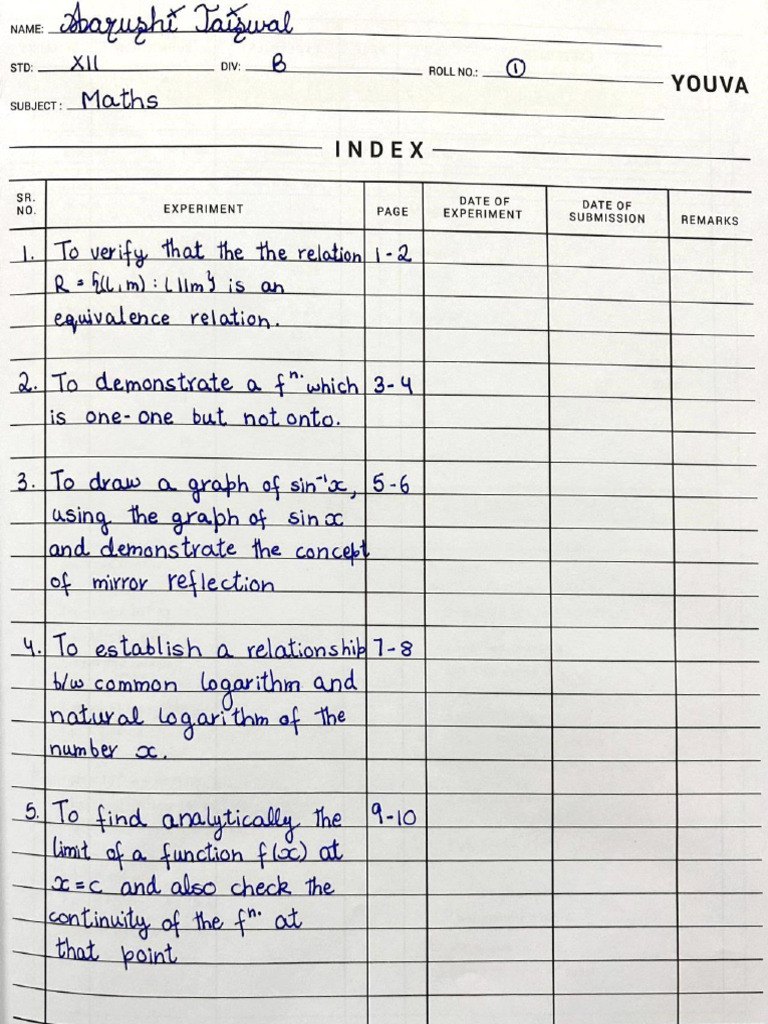 NAME: Aarushi Jaiswal
STD: XII DIV: B ROLL NO.: 1
YOUVA
SUBJECT: Maths
INDEX
SR. NO. EXPERIMENT PAGE DATE OF EXPERIMENT DATE OF SUBMISSION REMARKS
1. To verify that the the relation 1-2
R = {(l,m) : l||m} is an
equivalence relation.
2. To demonstrate a fⁿ· which 3-4
is one-one but not onto.
3. To draw a graph of sin⁻¹x, 5-6
using the graph of sin x
and demonstrate the concept
of mirror reflection
4. To establish a relationship 7-8
b/w common logarithm and
natural logarithm of the
number x.
5. To find analytically the 9-10
limit of a function f(x) at
x=c and also check the
continuity of the fⁿ· at
that point